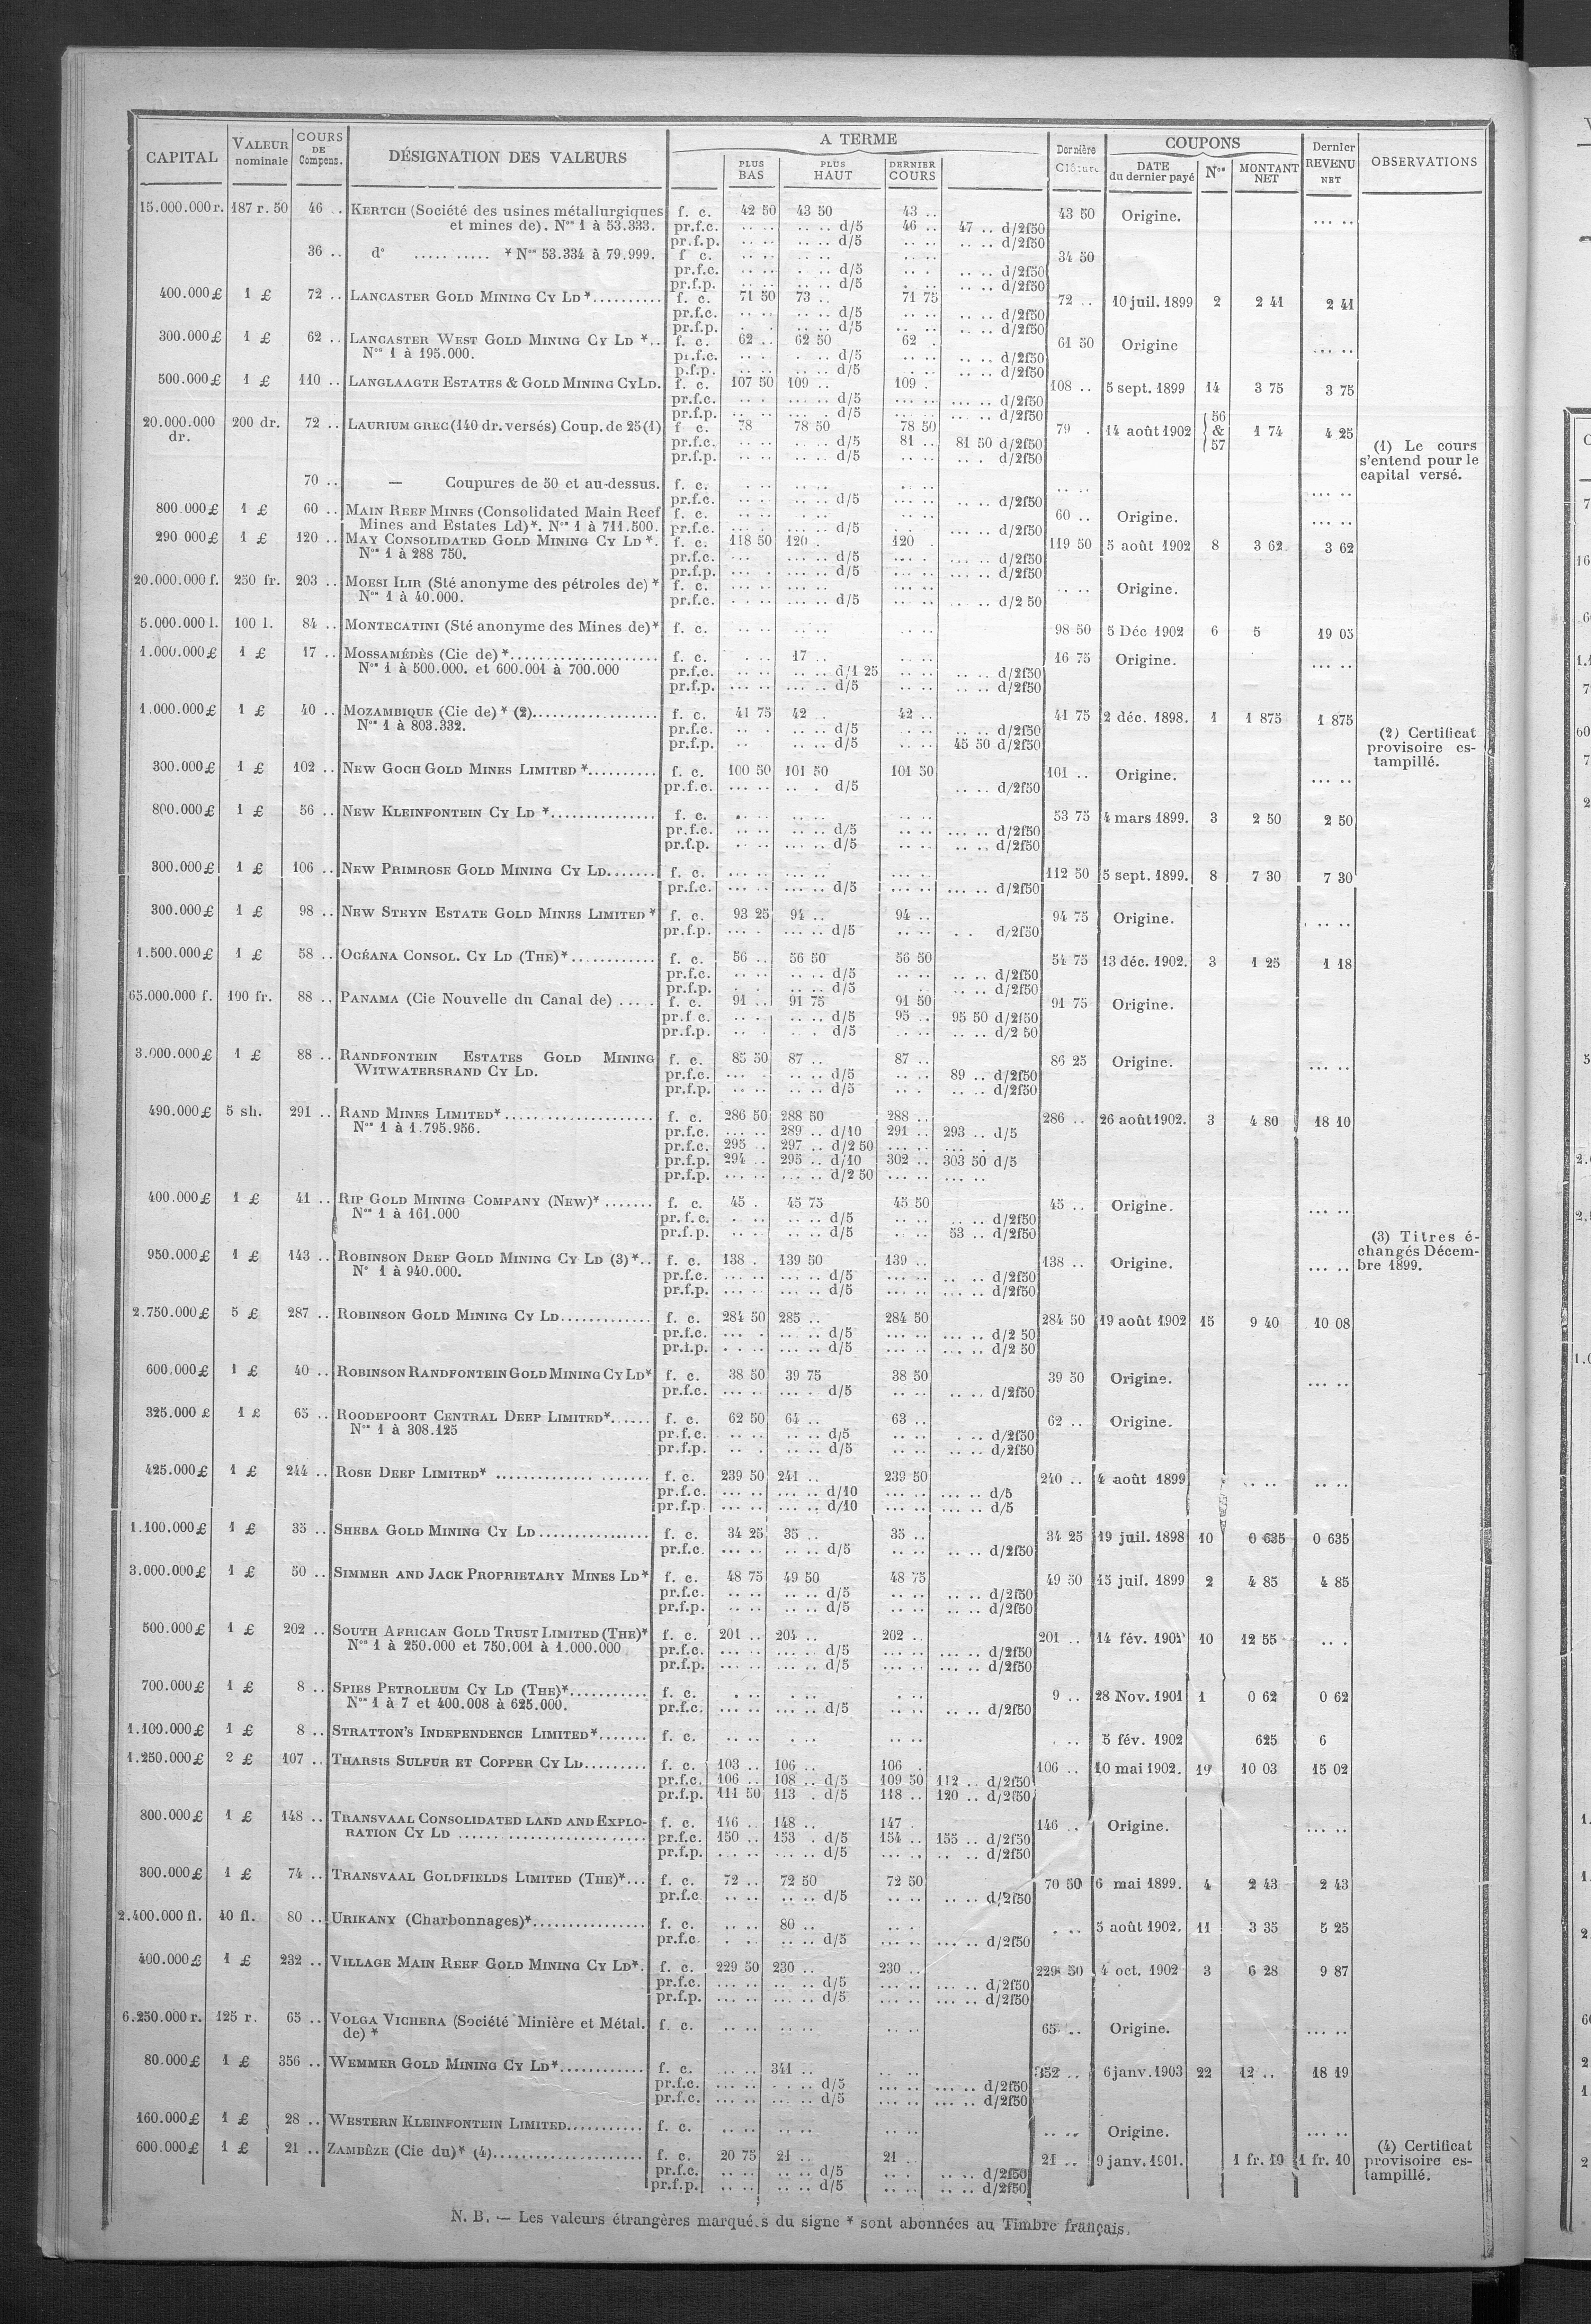 CAPITAL | VALEUR nominale | COURS DE Compens. | DÉSIGNATION DES VALEURS | A TERME | PLUS BAS | PLUS HAUT | DERNIER COURS | Dernière Clôture | COUPONS | DATE du dernier payé | Nos | MONTANT NET | Dernier REVENU NET | OBSERVATIONS
15.000.000 r. 187 r. 50 46 .. KERTCH (Société des usines métallurgiques f. c. 42 50 43 50 43 .. 43 50 Origine. ... ..
et mines de). Nos 1 à 53.333. pr.f.c. .. .. .. .. d/5 46 .. 47 .. d/2f50
pr.f.p. .. .. .. .. d/5 .. .. .. .. d/2f50
36 .. d° ..... ..... * Nos 53.334 à 79.999. f c. 34 50
pr.f.c. d/5 d/2f50
pr.f.p. d/5 d/2f50
400.000 £ 1 £ 72 .. LANCASTER GOLD MINING CY LD *.......... f. c. 71 50 73 .. 71 75 72 .. 10 juil. 1899 2 2 41 2 41
pr.f.c. d/5 d/2f50
pr.f.p. d/5 d/2f50
300.000 £ 1 £ 62 .. LANCASTER WEST GOLD MINING CY LD *.. f. c. 62 .. 62 50 62 . 61 50 Origine ... ..
Nos 1 à 195.000. pr.f.c. d/5 d/2f50
p.f.p. d/5 d/2f50
500.000 £ 1 £ 110 .. LANGLAAGTE ESTATES & GOLD MINING CY LD. f. c. 107 50 109 .. 109 . 108 .. 5 sept. 1899 14 3 75 3 75
pr.f.c. d/5 d/2f50
pr.f.p. d/5 d/2f50
20.000.000 dr. 200 dr. 72 .. LAURIUM GREC (140 dr. versés) Coup. de 25 (1) f c. 78 78 50 78 50 79 . 14 août 1902 56 & 57 1 74 4 25
pr.f.c. d/5 81 .. 81 50 d/2f50
pr.f.p. d/5 d/2f50
(1) Le cours
s'entend pour le
capital versé.
70 .. — Coupures de 50 et au-dessus. f. c. .. .. ... ..
pr.f.c. d/5 d/2f50
800.000 £ 1 £ 60 .. MAIN REEF MINES (Consolidated Main Reef f. c. 60 .. Origine. ... ..
Mines and Estates Ld) *. Nos 1 à 711.500. pr.f.c. d/5 d/2f50
290 000 £ 1 £ 120 .. MAY CONSOLIDATED GOLD MINING CY LD *. f. c. 118 50 120 . 120 . 119 50 5 août 1902 8 3 62 3 62
Nos 1 à 288 750. pr.f.c. d/5 d/2f50
pr.f.p. d/5 d/2f50
20.000.000 f. 250 fr. 203 .. MOESI ILIR (Sté anonyme des pétroles de) * f. c. .. .. Origine.
Nos 1 à 40.000. pr.f.c. d/5 d/2 50
5.000.000 l. 100 l. 84 .. MONTECATINI (Sté anonyme des Mines de) * f. c. 98 50 5 Déc 1902 6 5 19 05
1.000.000 £ 1 £ 17 .. MOSSAMÉDÈS (Cie de) *..................... f. c. 17 .. 16 75 Origine. ... ..
Nos 1 à 500.000. et 600.001 à 700.000 pr.f.c. d/1 25 d/2f50
pr.f.p. d/5 d/2f50
1.000.000 £ 1 £ 40 .. MOZAMBIQUE (Cie de) * (2).................. f. c. 41 75 42 .. 42 .. 41 75 2 déc. 1898. 1 1 875 1 875
Nos 1 à 803.332. pr.f.c. d/5 d/2f50
pr.f.p. d/5 45 50 d/2f50
(2) Certificat
provisoire es-
tampillé.
300.000 £ 1 £ 102 .. NEW GOCH GOLD MINES LIMITED *.......... f. c. 100 50 101 50 101 50 101 .. Origine. ... ..
pr.f.c. d/5 d/2f50
800.000 £ 1 £ 56 .. NEW KLEINFONTEIN CY LD *............... f. c. 53 75 4 mars 1899. 3 2 50 2 50
pr.f.c. d/5 d/2f50
pr.f.p. d/5 d/2f50
300.000 £ 1 £ 106 .. NEW PRIMROSE GOLD MINING CY LD....... f. c. 112 50 5 sept. 1899. 8 7 30 7 30
pr.f.c. d/5 d/2f50
300.000 £ 1 £ 98 .. NEW STEYN ESTATE GOLD MINES LIMITED * f. c. 93 25 94 .. 94 .. 94 75 Origine. .. ..
pr.f.p. d/5 d/2f50
1.500.000 £ 1 £ 58 .. OCÉANA CONSOL. CY LD (THE) *............ f. c. 56 .. 56 50 56 50 54 75 13 déc. 1902. 3 1 25 1 18
pr.f.c. d/5 d/2f50
pr.f.p. d/5 d/2f50
65.000.000 f. 100 fr. 88 .. PANAMA (Cie Nouvelle du Canal de) ..... f. c. 91 .. 91 75 91 50 91 75 Origine.
pr.f c. d/5 95 .. 95 50 d/2f50
pr.f.p. d/5 d/2 50
3.000.000 £ 1 £ 88 .. RANDFONTEIN ESTATES GOLD MINING f. c. 85 50 87 .. 87 .. 86 25 Origine. ... ..
WITWATERSRAND CY LD. pr.f.c. d/5 89 .. d/2f50
pr.f.p. d/5 d/2f50
490.000 £ 5 sh. 291 .. RAND MINES LIMITED *..................... f. c. 286 50 288 50 288 .. 286 .. 26 août 1902. 3 4 80 18 10
Nos 1 à 1.795.956. pr.f.c. ... .. 289 .. d/10 291 .. 293 .. d/5
pr.f.c. 295 .. 297 .. d/2 50
pr.f.p. 294 .. 295 .. d/10 302 .. 303 50 d/5
pr.f.p. d/2 50
400.000 £ 1 £ 41 .. RIP GOLD MINING COMPANY (NEW) * ....... f. c. 45 . 45 75 45 50 45 .. Origine. ... ..
Nos 1 à 161.000 pr.f.c. d/5 d/2f50
pr.f.p. d/5 53 .. d/2f50
950.000 £ 1 £ 143 .. ROBINSON DEEP GOLD MINING CY LD (3) *.. f. c. 138 . 139 50 139 .. 138 .. Origine. ... ..
N° 1 à 940.000. pr.f.c. d/5 d/2f50
pr.f.p. d/5 d/2f50
(3) Titres é-
changés Décem-
bre 1899.
2.750.000 £ 5 £ 287 .. ROBINSON GOLD MINING CY LD............. f. c. 284 50 285 .. 284 50 284 50 19 août 1902 15 9 40 10 08
pr.f.c. d/5 d/2 50
pr.f.p. d/5 d/2 50
600.000 £ 1 £ 40 .. ROBINSON RANDFONTEIN GOLD MINING CY LD * f. c. 38 50 39 75 38 50 39 50 Origine. ... ..
pr.f.c. d/5 d/2f50
325.000 £ 1 £ 65 .. ROODEPOORT CENTRAL DEEP LIMITED *...... f. c. 62 50 64 .. 63 .. 62 .. Origine.
Nos 1 à 308.125 pr.f.c. d/5 d/2f50
pr.f.p. d/5 d/2f50
425.000 £ 1 £ 244 .. ROSE DEEP LIMITED * ............. ....... f. c. 239 50 241 .. 239 50 240 .. 4 août 1899 .. .. .. ..
pr.f.c. d/10 d/5
pr.f.p d/10 d/5
1.100.000 £ 1 £ 35 .. SHEBA GOLD MINING CY LD................ f. c. 34 25 35 .. 35 .. 34 25 19 juil. 1898 10 0 635 0 635
pr.f.c. d/5 d/2f50
3.000.000 £ 1 £ 50 .. SIMMER AND JACK PROPRIETARY MINES LD * f. c. 48 75 49 50 48 75 49 50 15 juil. 1899 2 4 85 4 85
pr.f.c. d/5 d/2f50
pr.f.p. d/5 d/2f50
500.000 £ 1 £ 202 .. SOUTH AFRICAN GOLD TRUST LIMITED (THE) * f. c. 201 .. 204 .. 202 .. 201 .. 14 fév. 10 12 55 .. .
Nos 1 à 250.000 et 750.001 à 1.000.000 pr.f.c. d/5 d/2f50
pr.f.p. d/5 d/2f50
700.000 £ 1 £ 8 .. SPIES PETROLEUM CY LD (THE) *........... f. c. 9 .. 28 Nov. 1901 1 0 62 0 62
Nos 1 à 7 et 400.008 à 625.000. pr.f.c. d/5 d/2f50
1.100.000 £ 1 £ 8 .. STRATTON'S INDEPENDENCE LIMITED *....... f. c. 5 fév. 1902 625 6
1.250.000 £ 2 £ 107 .. THARSIS SULFUR ET COPPER CY LD......... f. c. 103 .. 106 .. 106 . 106 .. 10 mai 1902. 19 10 03 15 02
pr.f.c. 106 .. 108 .. d/5 109 50 112 .. d/2f50
pr.f.p. 111 50 113 . d/5 118 .. 120 .. d/2f50
800.000 £ 1 £ 148 .. TRANSVAAL CONSOLIDATED LAND AND EXPLO- f. c. 146 .. 148 .. 147 . 146 .. Origine. ... ..
RATION CY LD ...... .................... pr.f.c. 150 .. 153 . d/5 154 .. 155 .. d/2f50
pr.f.p. d/5 d/2f50
300.000 £ 1 £ 74 .. TRANSVAAL GOLDFIELDS LIMITED (THE) *... f. c. 72 .. 72 50 72 50 70 50 6 mai 1899. 4 2 43 2 43
pr.f.c d/5 d/2f50
2.400.000 fl. 40 fl. 80 .. URIKANY (Charbonnages) *................ f. c. 80 .. 5 août 1902. 11 3 35 5 25
pr.f.c d/5 d/2f50
400.000 £ 1 £ 232 .. VILLAGE MAIN REEF GOLD MINING CY LD *. f. c. 229 50 230 .. 230 .. 229 50 4 oct. 1902 3 6 28 9 87
pr.f.c. d/5 d/2f50
pr.f.p. d/5 d/2f50
6.250.000 r. 125 r. 65 .. VOLGA VICHERA (Société Minière et Métal. f. c. 65 .. Origine. ... ..
de) *
80.000 £ 1 £ 356 .. WEMMER GOLD MINING CY LD *............ f. c. 341 .. 352 .. 6 janv. 1903 22 12 .. 18 19
pr.f.c. d/5 d/2f50
pr.f.c. d/5 d/2f50
160.000 £ 1 £ 28 .. WESTERN KLEINFONTEIN LIMITED........... f. c. .. .. Origine. ... ..
600.000 £ 1 £ 21 .. ZAMBÈZE (Cie du) * (4)..................... f. c. 20 75 21 .. 21 . 21 .. 9 janv. 1901. 1 fr. 10 1 fr. 10
pr.f.c. d/5 d/2f50
pr.f.p. d/5 d/2f50
(4) Certificat
provisoire es-
tampillé.
N. B. — Les valeurs étrangères marquées du signe * sont abonnées au Timbre français.